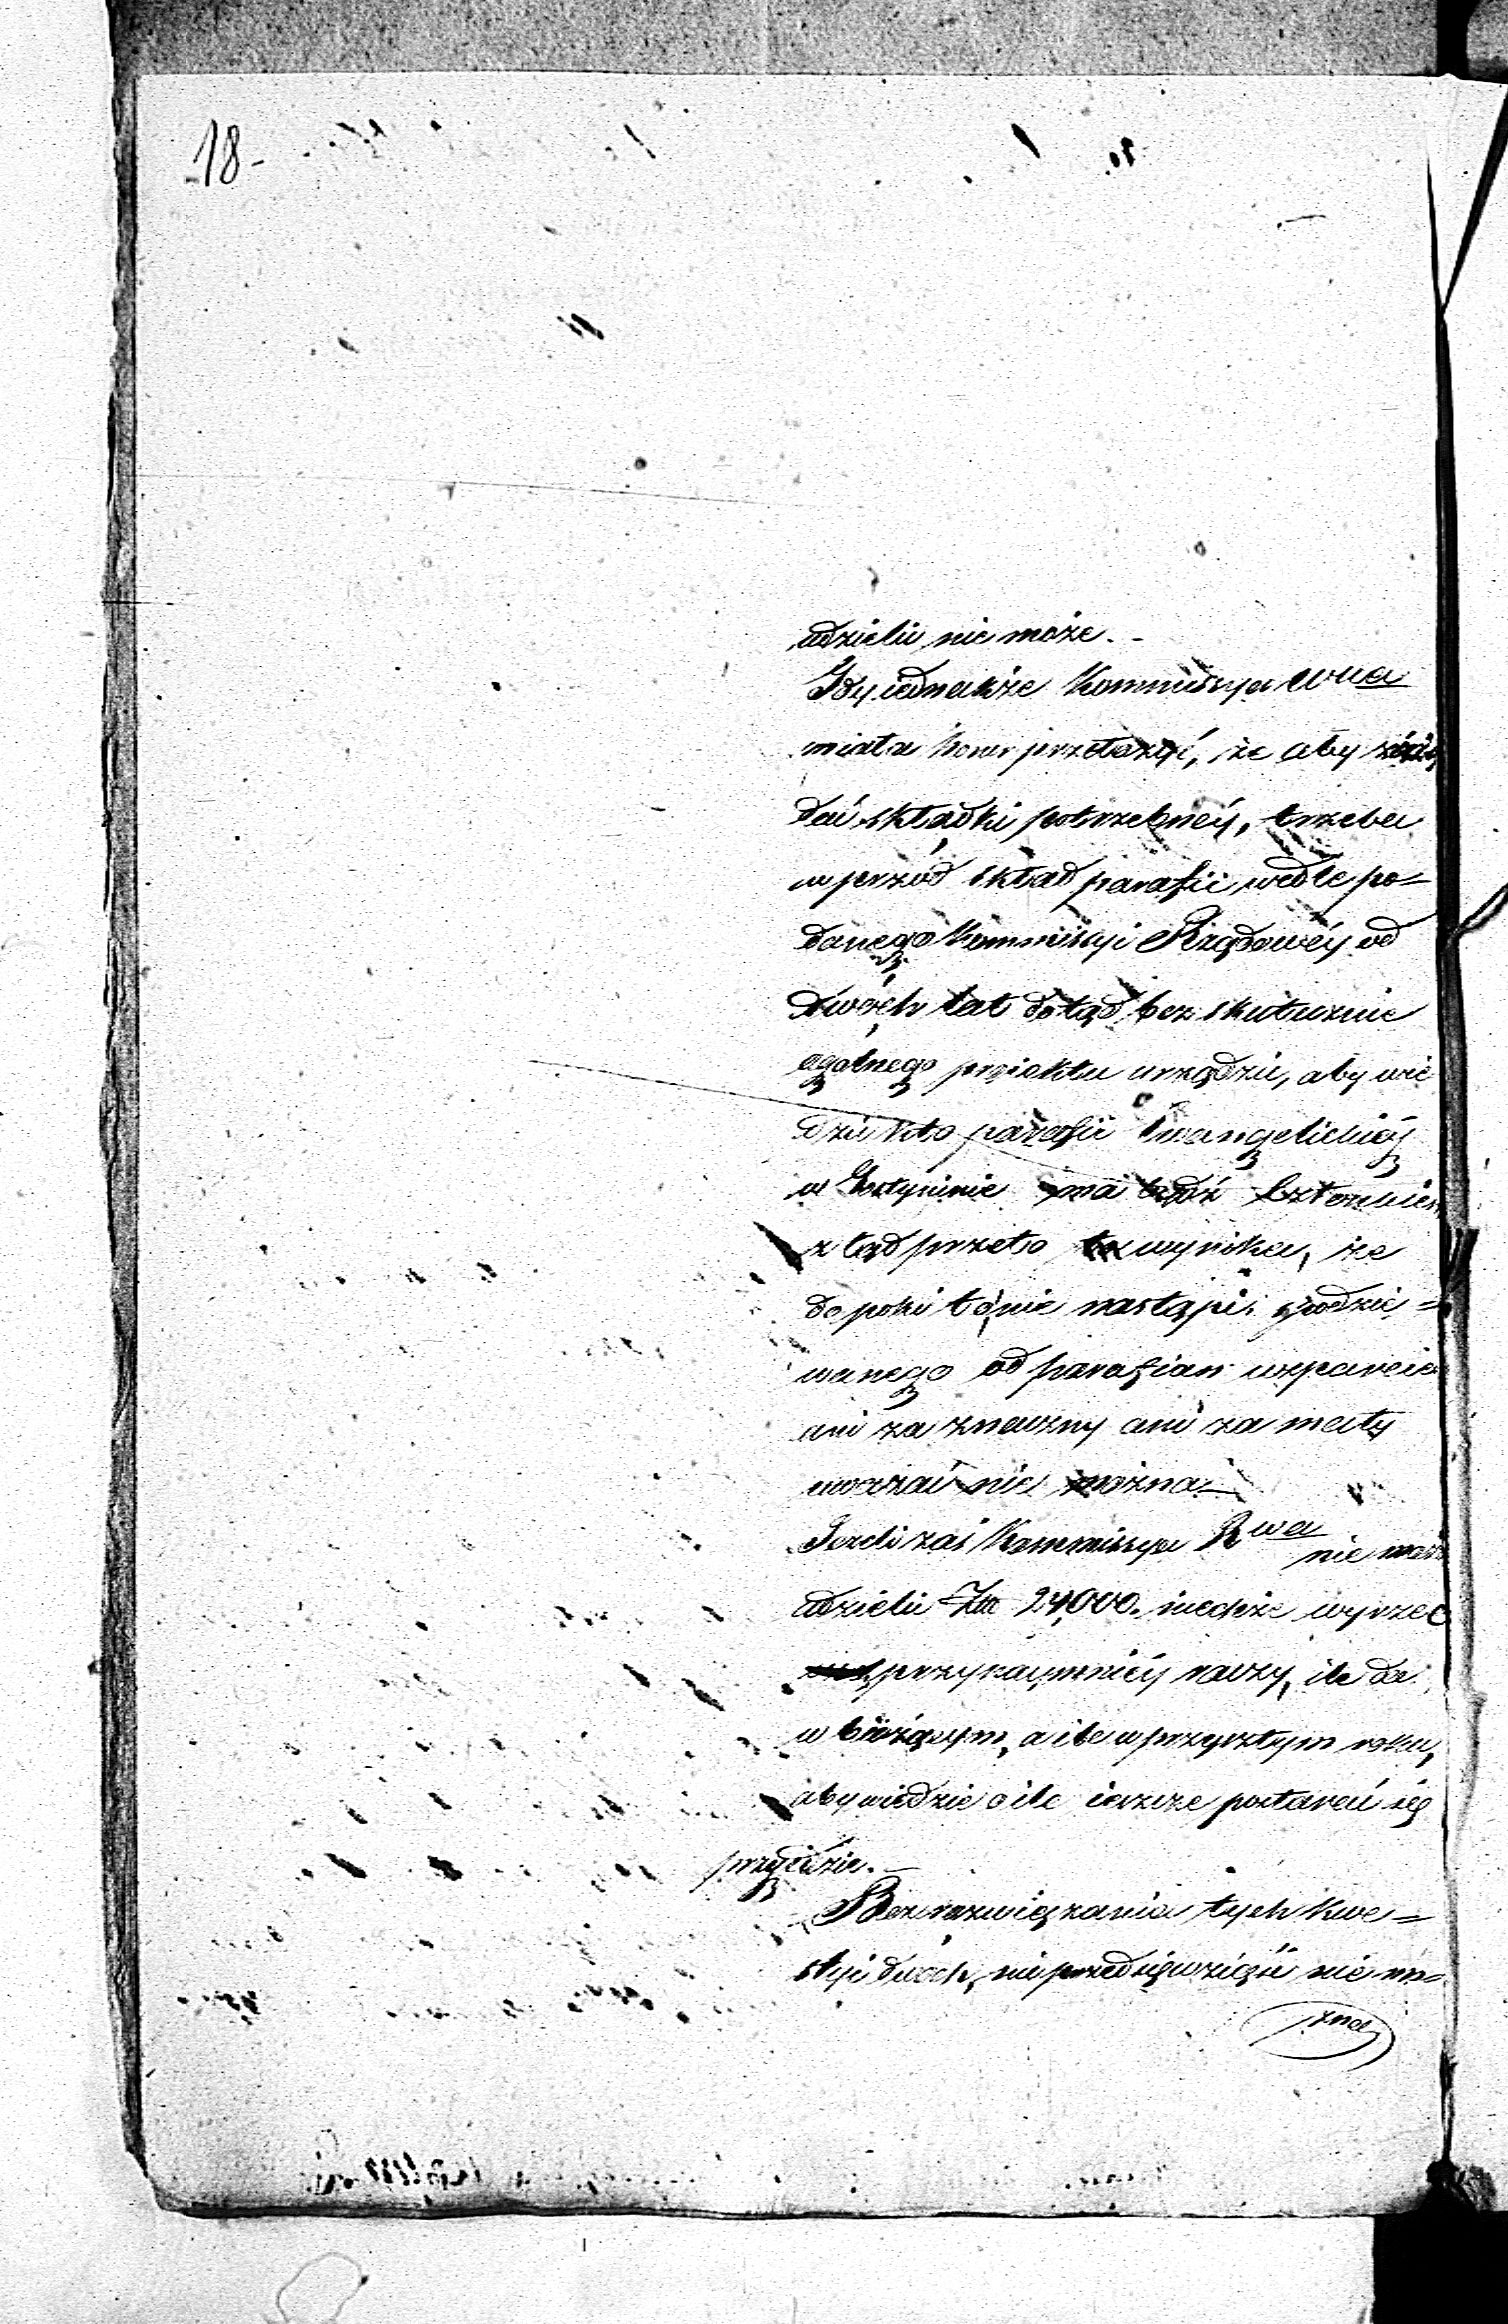 18-
udzielić nie może. -
Gdy iednakże Kommissya Wwa
miała honor przełożyć, że aby
dać składki potrzebnéy, trzeba
w przód skład parafii wedle po=
danego Kommissyi Rządowéy od
dwóch lat dotąd bez skutecznie
ogólnego proiektu urządzić, aby wie
dzić kto parafii Ewangelickiéy
w Gostyninie ma bydź Członkiem
z tąd przeto wynika, że
do póki to nie nastąpi, spodzie=
wanego od parafian wsparcia
ani za znaczny ani za mały
uważać nie można -
Jeżeli zaś Kommissya Rwa nie może
udzielić Złł 24,000. niechże wyrzec
przynaymniéy raczy, ile da
w bieżącym, a ile w przyszłym roku,
aby wiedzieć o ile ieszcze postarać się
przyidzie. -
Bez rozwiązania tych kwe=
styi dwóch, nic przedsięwziąść nie mo=
żna